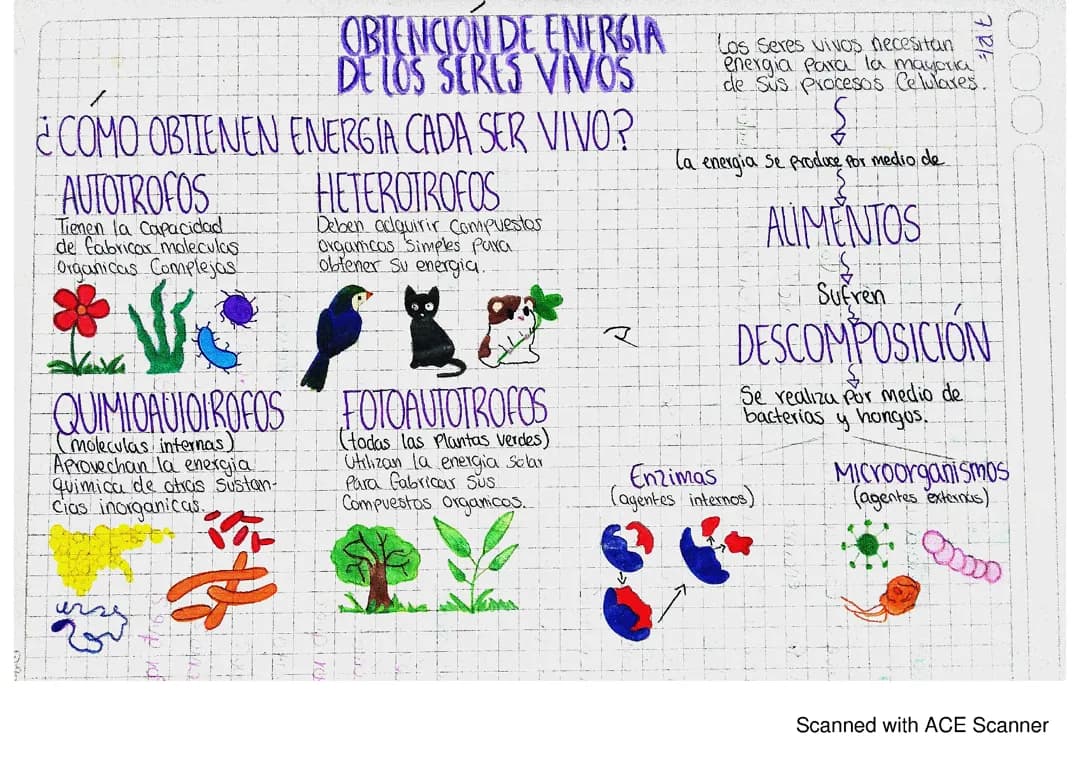 OBTENCIÓN DE ENERGIA
DE LOS SERES VIVOS
¿CÓMO OBTIENEN ENERGIA CADA SER VIVO?
AUTOTROFOS
Tienen la capacidad
de fabricar moleculas
organicas complejas
HETEROTROFOS
Deben adquirir compuestos
organicos simples para
obtener su energia.
QUIMIOAUTOTROFOS
(moleculas internas)
Aprovechan la energia
quimica de otras sustan-
cias inorganicas.
FOTOAUTOTROFOS
(todas las plantas verdes)
Utilizan la energia solar
para fabricar sus
compuestos organicos.
Los seres vivos necesitan
energia para la mayoria
de sus procesos celulares.
la energia se produce por medio de
ALIMENTOS
Sufren
DESCOMPOSICIÓN
Se realiza por medio de
bacterias y hongos.
Enzimas
(agentes internos)
MICROORGANISMOS
(agentes externos)
Scanned with ACE Scanner